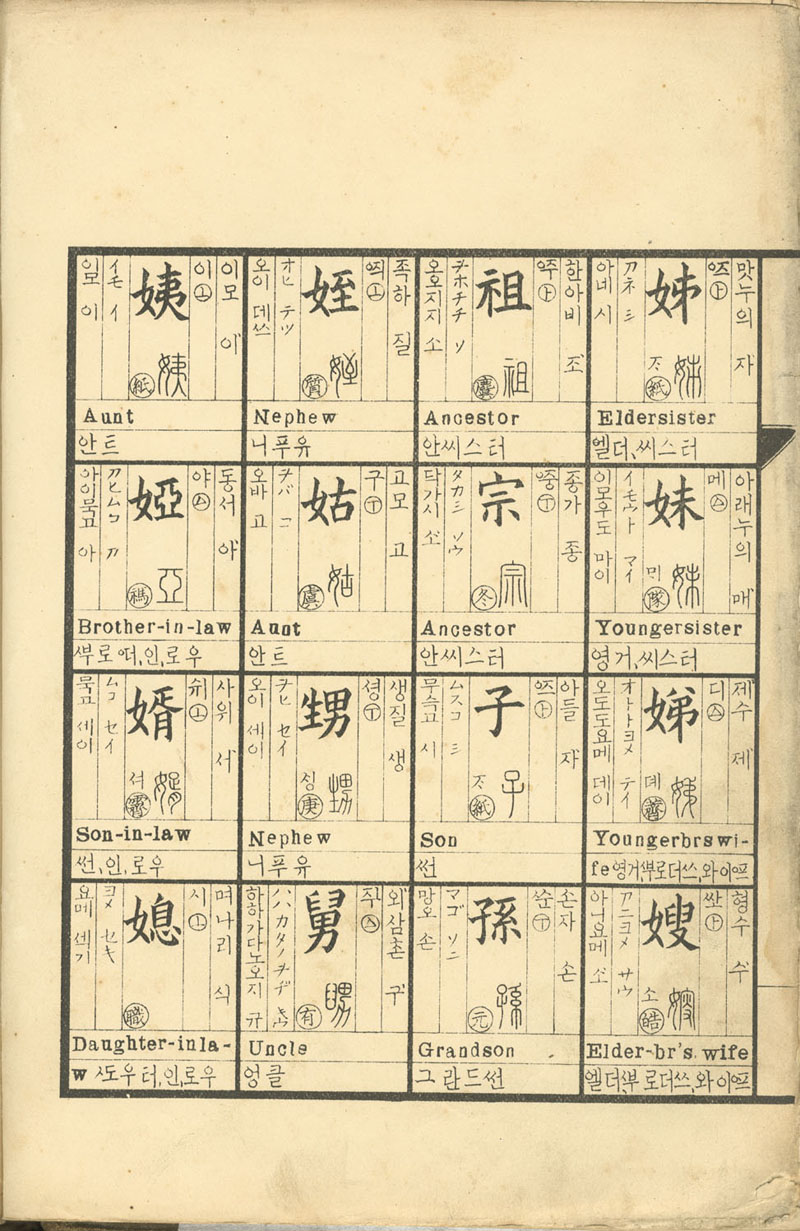 맛누의 자
㊤
姊
姊
紙
アネ シ
아네 시
Eldersister
엘더,씨스터
아래누의 매
메
妹
妹
隊
イモウト マイ
이모우도 마이
Youngersister
영거,씨스터
제수 제
디
娣
娣
데
オトトヨメ テイ
오도도요메 데이
Youngerbrswi-
fe영거,ᄲᅳ로더쓰,와이ᅋᅳ
형수 수
싼
㊤
嫂
嫂
소
皓
アニヨメ サウ
아니요메 소
Elder-br's.wife
엘더,ᄲᅳ로더쓰,와이ᅋᅳ
한아비 조
㊤
祖
祖
麌
ヲホヂヂ ソ
오호지지 소
Ancestor
안씨스터
종가 종
㊦
宗
宗
冬
タカシ ソウ
다가시 소
Ancestor
안씨스터
아들 자
㊤
子
子
紙
ムスコ シ
무슥고 시
Son
썬
손자 손
쑨
㊦
孫
孫
元
マゴ ソン
망오 손
Grandson
그란드썬
족하 질
㊤
姪
姪
質
オヒ テツ
오이 데쓰
Nephew
니푸유
고모 고
구
㊦
姑
姑
虞
ヲバ コ
오바 고
Aunt
안트
생질 생
셩
㊦
甥
甥
싱
庚
ヲヒ セイ
오이 세이
Nephew
니푸유
외삼촌 구
舅
舅
有
Uncle
엉클
이모 이
이
㊤
姨
姨
紙
イモ イ
이모 이
Aunt
안트
동서 아
야
婭
亞
禡
アヒムコ ア
아이묵고 아
Brother-in-law
ᄲᅳ로ᄯᅥ,인,로우
사위 서
쉬
㊤
婿
婿
셔
霽
ムコ セイ
묵고 세이
Son-in-law
썬,인,로우
며나리 식
시
㊤
媳
職
ヨメ セキ
요메 섹기
Daughter-inla-
w ᄯᅩ우터,인,로우